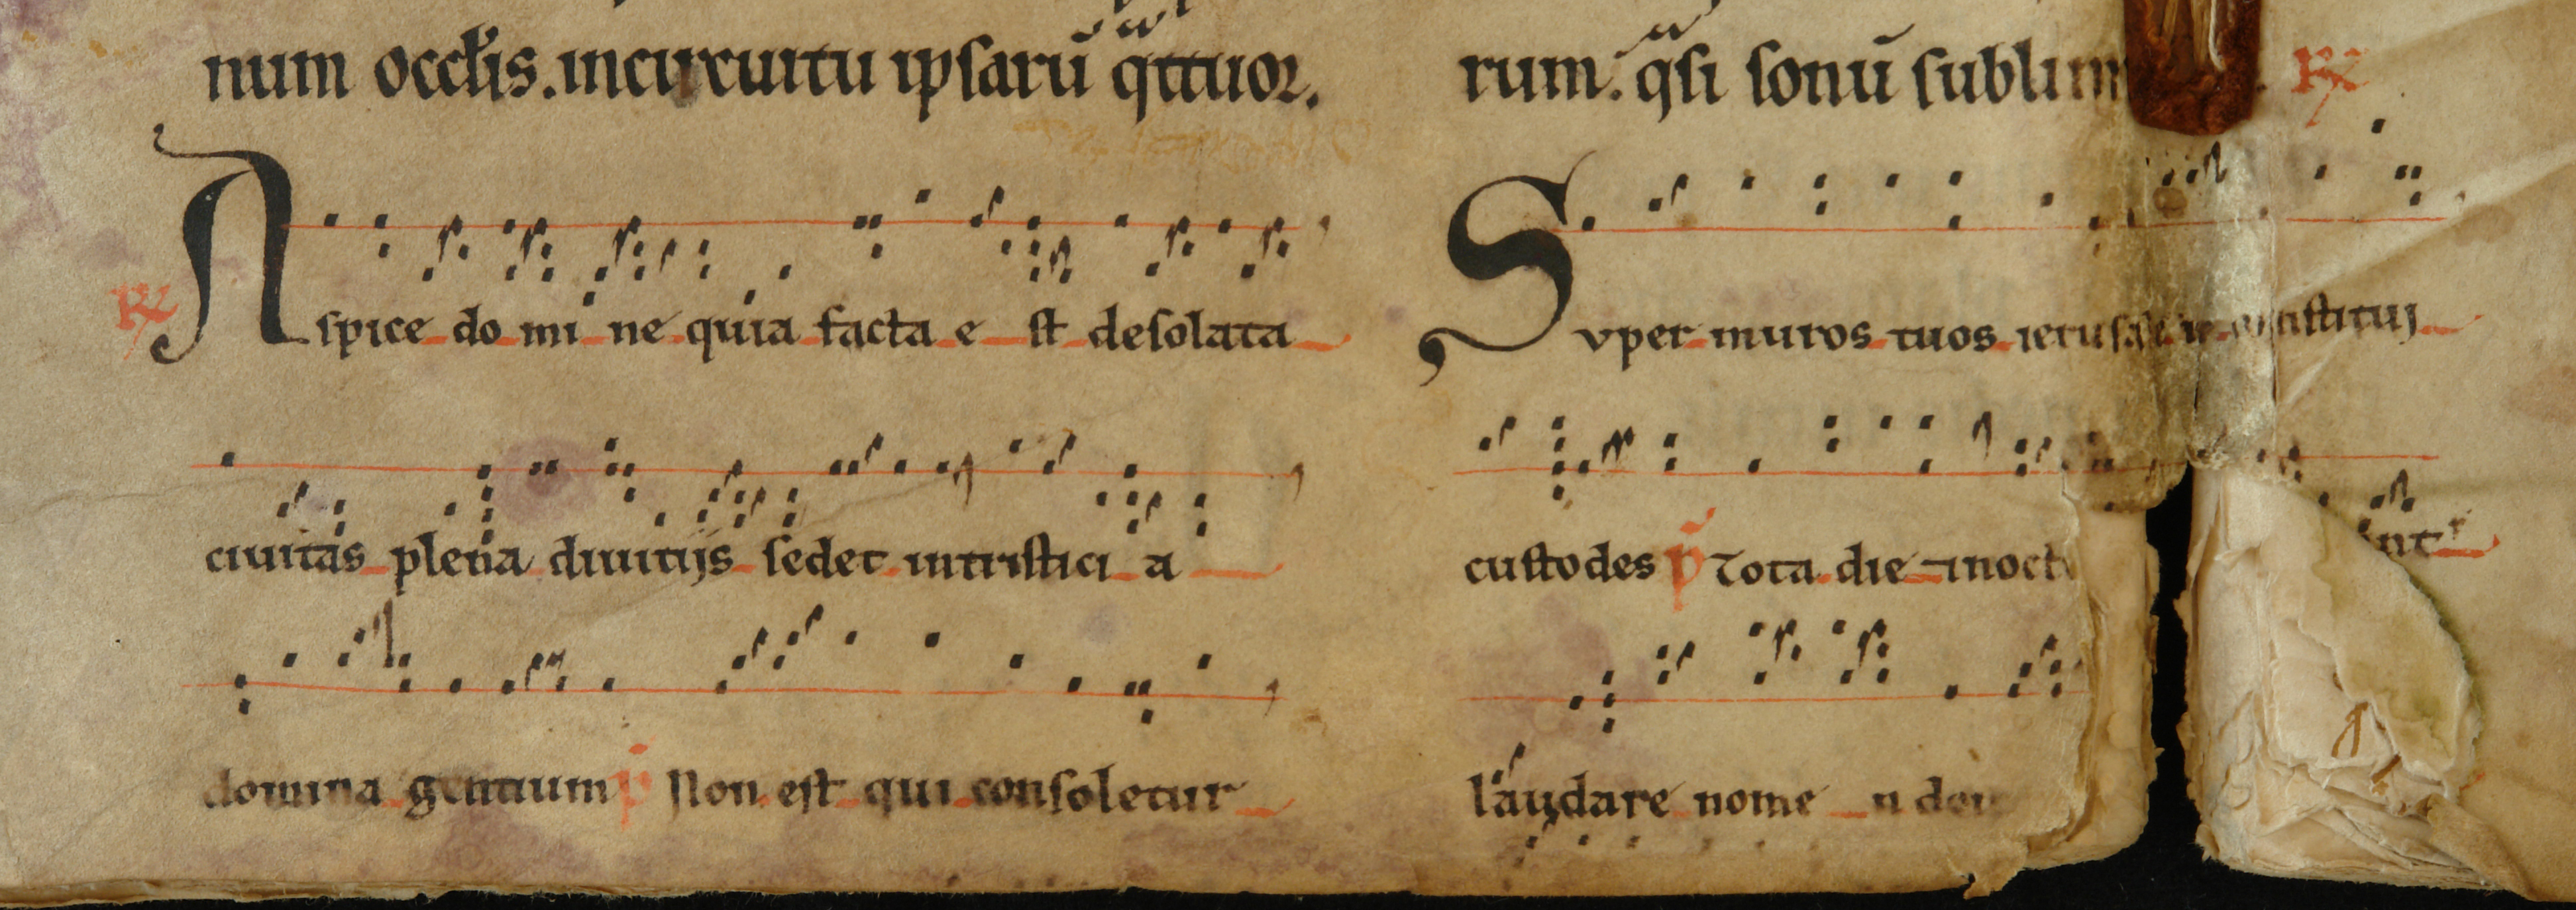 num occłis. incircuitu ipsarū qͣttuor.
℟ Aspice do mi ne quia facta e st desolata
ciuitas plena diuitijs sedet intristici a
domina gentium p̄ Non est qui consoletur
rum. qͣsi sonū sublim ℟
Super muros tuos
custodes p̄ Tota die ⁊ noct
laudare nome n